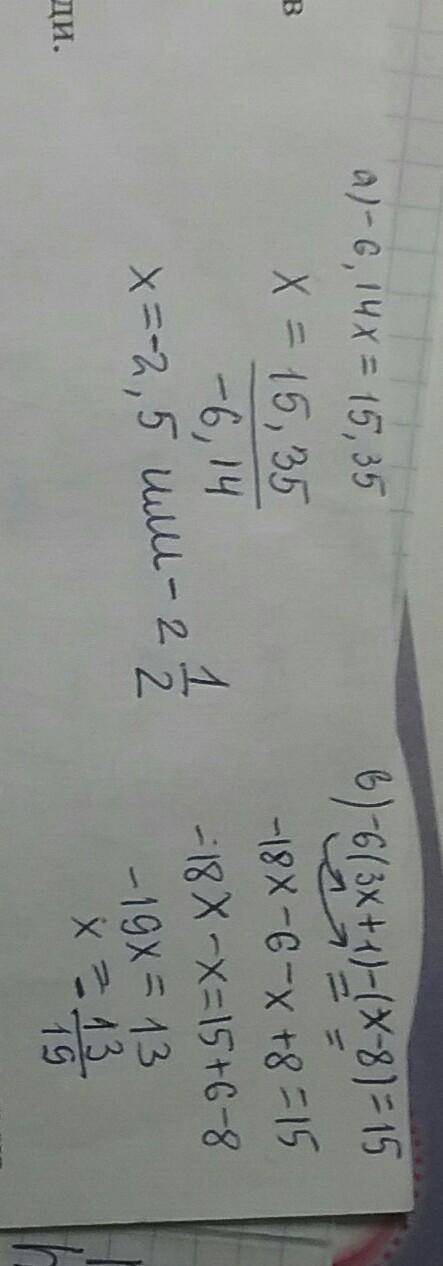 в
ди.
а) -6,14x = 15,35
x = 15,35
-6,14
x = -2,5 или - 2 1/2
в) -6(3x+1)-(x-8)=15
-18x-6-x+8=15
-18x-x=15+6-8
-19x=13
x=-13/19